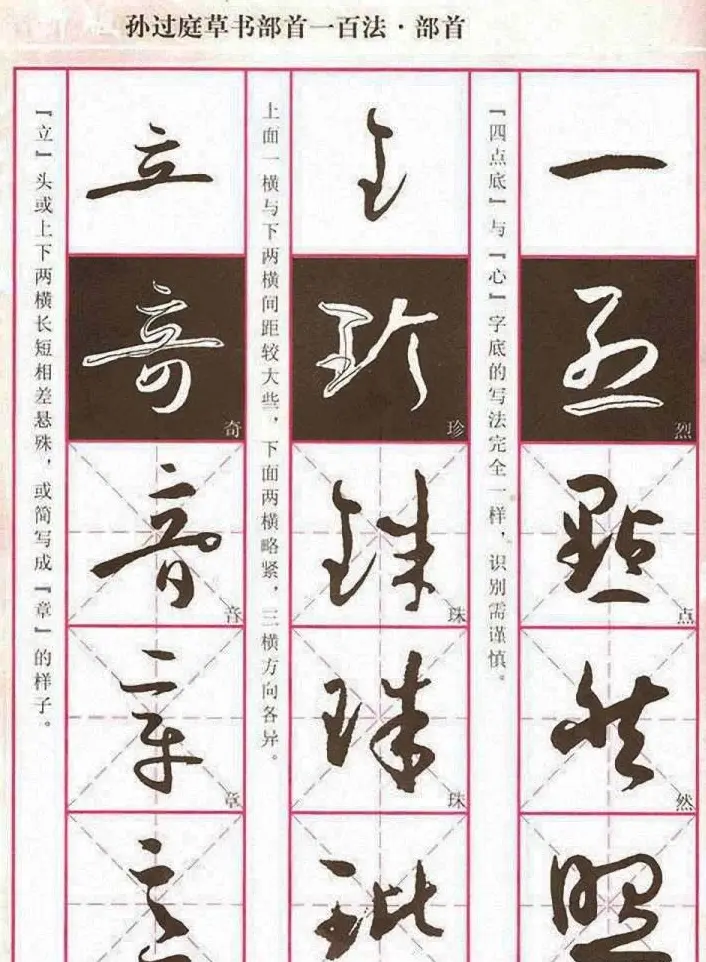 孙过庭草书部首一百法·部首
『四点底』与『心』字底的写法完全一样，识别需谨慎。
一
烈
烈
点
点
然
然
照
上面一横与下两横间距较大些，下面两横略紧，三横方向各异。
王
珍
珍
珠
珠
珠
珠
玭
『立』头或上下两横长短相差悬殊，或简写成『章』的样子。
立
奇
奇
音
音
章
章